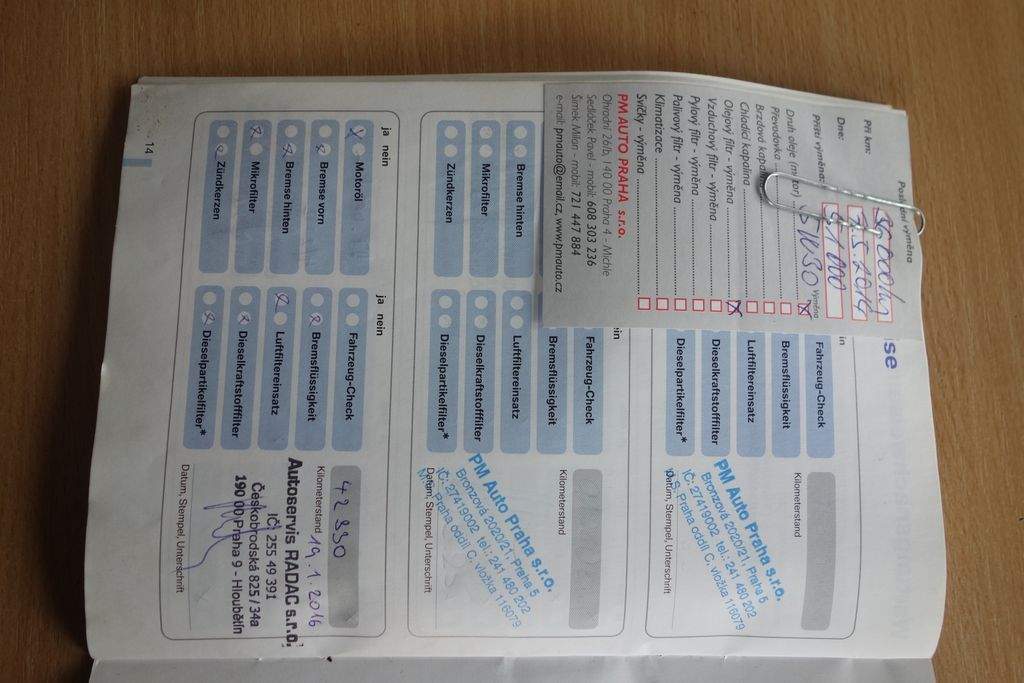 Poslední výměna
Při km:
Dnes:
7.5.2014
Příští výměna:
91000
Druh oleje (motor)
5W30
výměna
Převodovka
Brzdová kapalina
Chladicí kapalina
Olejový filtr - výměna
Vzduchový filtr - výměna
Pylový filtr - výměna
Palivový filtr - výměna
Klimatizace
Svíčky - výměna
PM AUTO PRAHA s.r.o.
Ohradní 26/b, 140 00 Praha 4 - Michle
Sedláček Pavel - mobil: 608 303 236
Šimek Milan - mobil: 721 447 884
e-mail: pmauto@email.cz, www.pmauto.cz
se
in
Fahrzeug-Check
Bremsflüssigkeit
Luftfiltereinsatz
Dieselkraftstofffilter
Dieselpartikelfilter*
Kilometerstand
PM Auto Praha s.r.o.
Bronzová 2020/21, Praha 5
IČ: 27419002 tel.: 241 480 202
M.S. Praha oddíl C, vložka 116079
Datum, Stempel, Unterschrift
Bremse hinten
Mikrofilter
Zündkerzen
ein
Fahrzeug-Check
Bremsflüssigkeit
Luftfiltereinsatz
Dieselkraftstofffilter
Dieselpartikelfilter*
Kilometerstand
PM Auto Praha s.r.o.
Bronzová 2020/21, Praha 5
IČ: 27419002 tel.: 241 480 202
M.S. Praha oddíl C, vložka 116079
Datum, Stempel, Unterschrift
ja nein
Motoröl
Bremse vorn
Bremse hinten
Mikrofilter
Zündkerzen
ja nein
Fahrzeug-Check
Bremsflüssigkeit
Luftfiltereinsatz
Dieselkraftstofffilter
Dieselpartikelfilter*
42 330
Kilometerstand
19.1.2016
Autoservis RADAC s.r.o.
IČ: 255 49 391
Českobrodská 825/34a
190 00 Praha 9 - Hloubětín
Datum, Stempel, Unterschrift
14